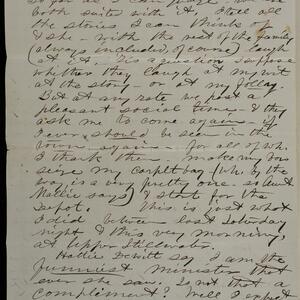 so far as I can judge
book suited with E.A., & tell all
the stories I can think of
& she - with the rest of the family
(always included, of course) laugh
at E.A. Tis a question I suppose
whether they laugh at my wit
at the story - or at my folly.
But at any rate we pass
pleasant social times - & they
ask me to come again - if
I ever should be seen in the
town again - for all of wh.
I thank them - make my bow
seize my carpet bag (wh. by the
way is a very pretty one so Aunt
Mattie says) & start for the
Depot. This is just what
I did between last Saturday
night & this very morning,
at Upper Stillwater.
Hattie Dewitt say I am the
funniest minister that
ever she saw. Is not that a
compliment? Well I